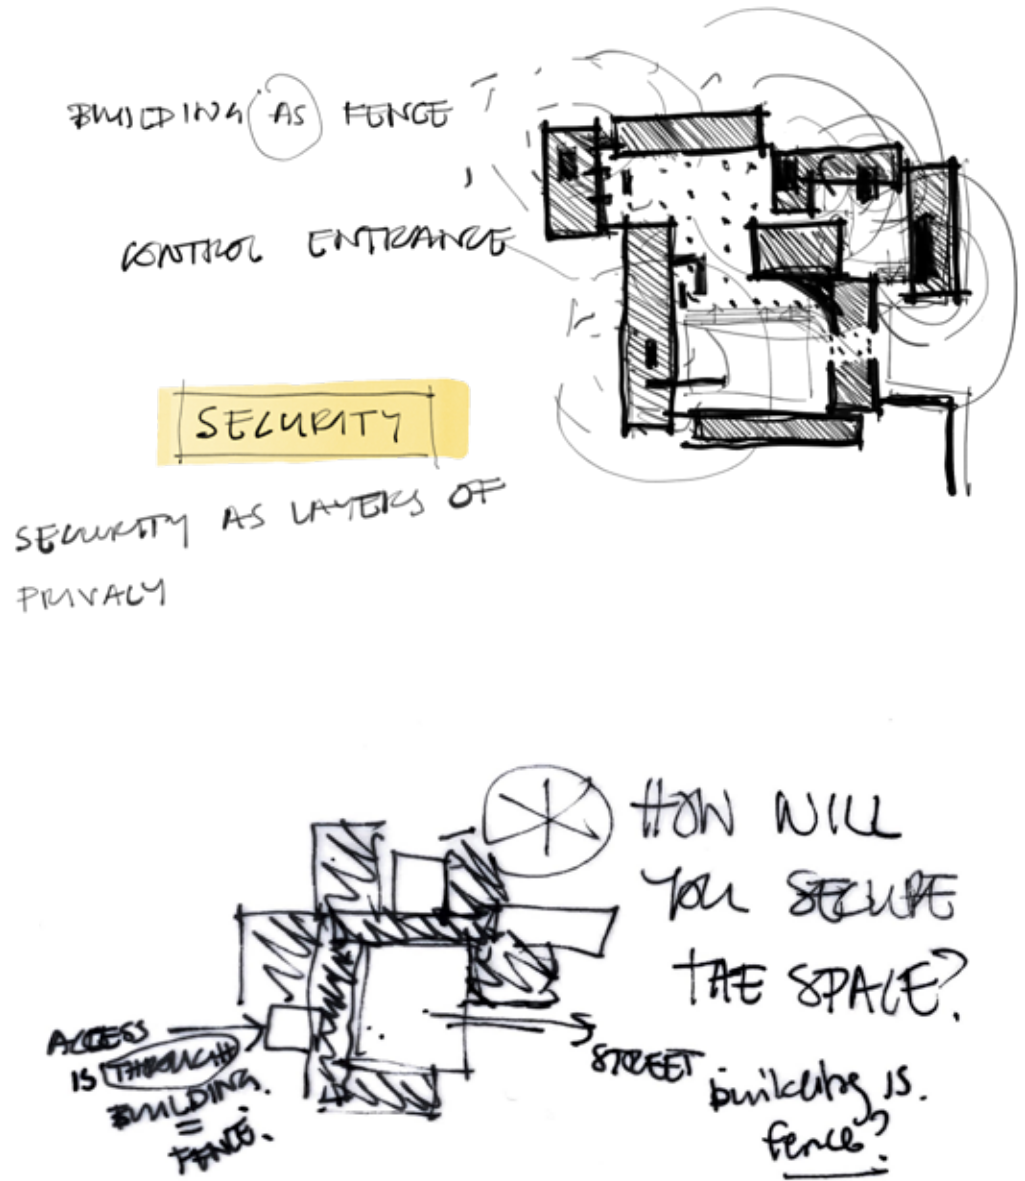 BUILDING AS FENCE
CONTROL ENTRANCE
SECURITY
SECURITY AS LAYERS OF
PRIVACY
HOW WILL
YOU SECURE
THE SPACE?
ACCESS
IS THROUGH
BUILDING.
=
FENCE.
STREET
building is.
fence?